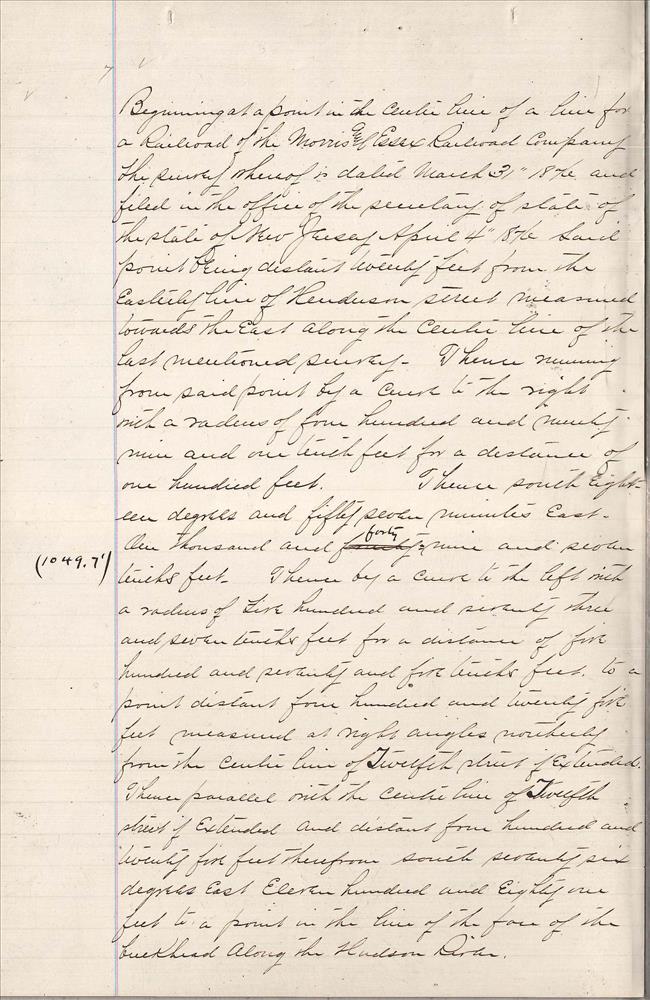 Beginning at a point in the centre line of a line for
a Railroad of the Morris & Essex Railroad Company
the survey whereof is dated March 31" 187 and
filed in the office of the secretary of state of
the state of New Jersey April 4" 187 Said
point being distant twenty feet from the
Easterly line of Henderson street measured
towards the East along the centre line of the
last mentioned survey- Thence running
from said point by a curve to the right
with a radius of four hundred and ninety
nine and one tenth feet for a distance of
one hundred feet. Thence south Eight-
een degrees and fifty seven minutes East-
forty
One thousand and nine and seven
(1049.7')
tenths feet- Thence by a curve to the left with
a radius of five hundred and seventy three
and seven tenths feet for a distance of five
hundred and seventy and five tenths feet. to a
point distant four hundred and twenty five
feet measured at right angles northerly
from the centre line of Twelfth street if Extended.
Thence parallel with the centre line of Twelfth
street if Extended and distant four hundred and
twenty five feet therefrom south seventy six
degrees East Eleven hundred and Eighty one
feet to a point in the line of the face of the
bulkhead along the Hudson River.